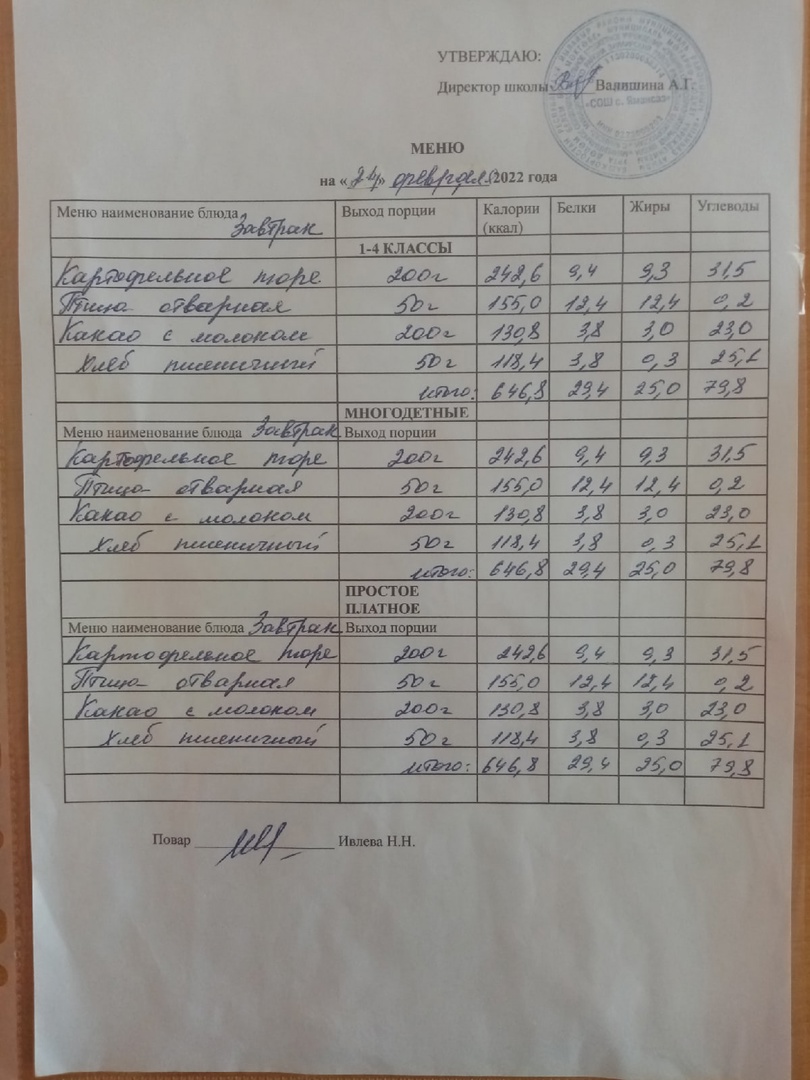 УТВЕРЖДАЮ:
Директор школы Валишина А.Г.
«СОШ с.
МЕНЮ
на «24» февраля 2022 года
Меню наименование блюда Завтрак Выход порции Калории (ккал) Белки Жиры Углеводы
1-4 КЛАССЫ
Картофельное пюре 200г 242,6 9,4 9,3 31,5
Птица отварная 50г 155,0 12,4 12,4 0,2
Какао с молоком 200г 130,8 3,8 3,0 23,0
Хлеб пшеничный 50г 118,4 3,8 0,3 25,1
итого: 646,8 29,4 25,0 79,8
МНОГОДЕТНЫЕ
Меню наименование блюда Завтрак Выход порции
Картофельное пюре 200г 242,6 9,4 9,3 31,5
Птица отварная 50г 155,0 12,4 12,4 0,2
Какао с молоком 200г 130,8 3,8 3,0 23,0
Хлеб пшеничный 50г 118,4 3,8 0,3 25,1
итого: 646,8 29,4 25,0 79,8
ПРОСТОЕ
ПЛАТНОЕ
Меню наименование блюда Завтрак Выход порции
Картофельное пюре 200г 242,6 9,4 9,3 31,5
Птица отварная 50г 155,0 12,4 12,4 0,2
Какао с молоком 200г 130,8 3,8 3,0 23,0
Хлеб пшеничный 50г 118,4 3,8 0,3 25,1
итого: 646,8 29,4 25,0 79,8
Повар Ивлева Н.Н.